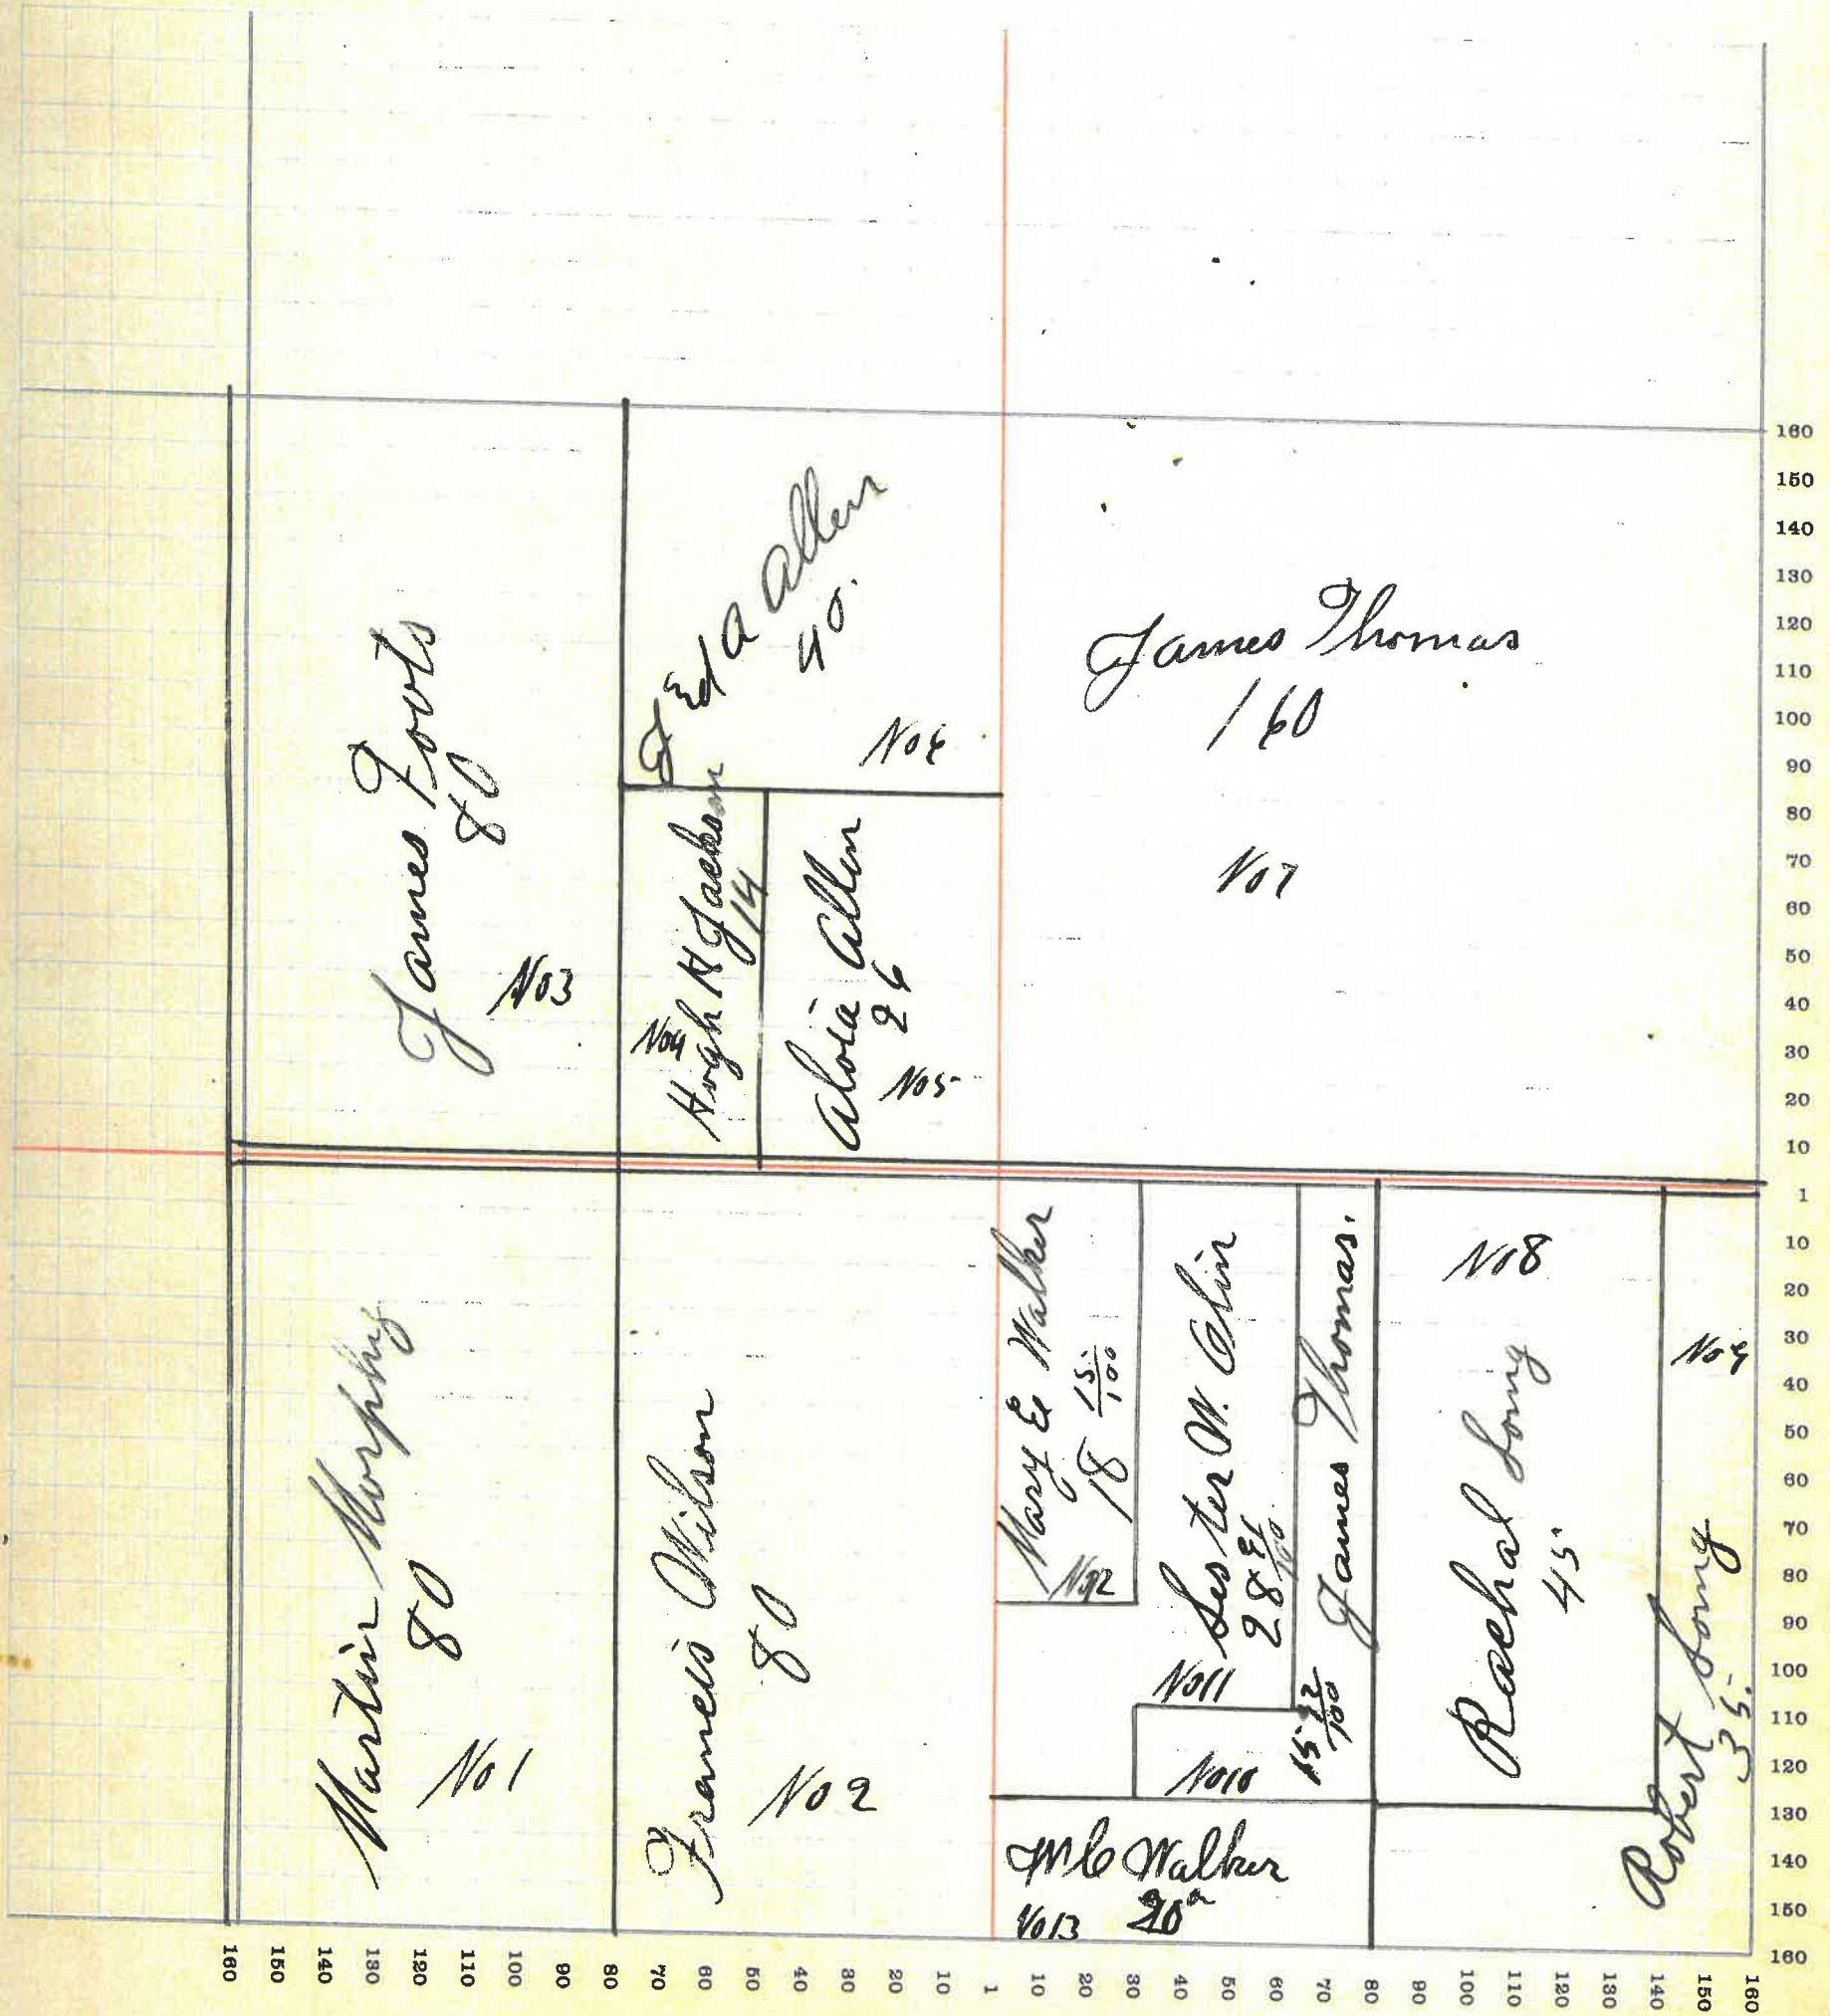 James Foots
80
No3
J Ed a Allen
40.
No6
Hogh H Jackson
14
No4
Alvia Allen
26
No5
James Thomas
160
No7
Martin Morphy
80
No1
Francis Wilson
80
No2
Mary E Walker
18 15/100
No12
Lester W. Olin
No11
James Thomas.
15 22/100
No10
No8
Rachal Long
45
No9
Robert Long
35.
M C Walker
No13 20a
160
150
140
130
120
110
100
90
80
70
60
50
40
30
20
10
1
10
20
30
40
50
60
70
80
90
100
110
120
130
140
150
160
160 150 140 130 120 110 100 90 80 70 60 50 40 30 20 10 1 10 20 30 40 50 60 70 80 90 100 110 120 130 140 150 160